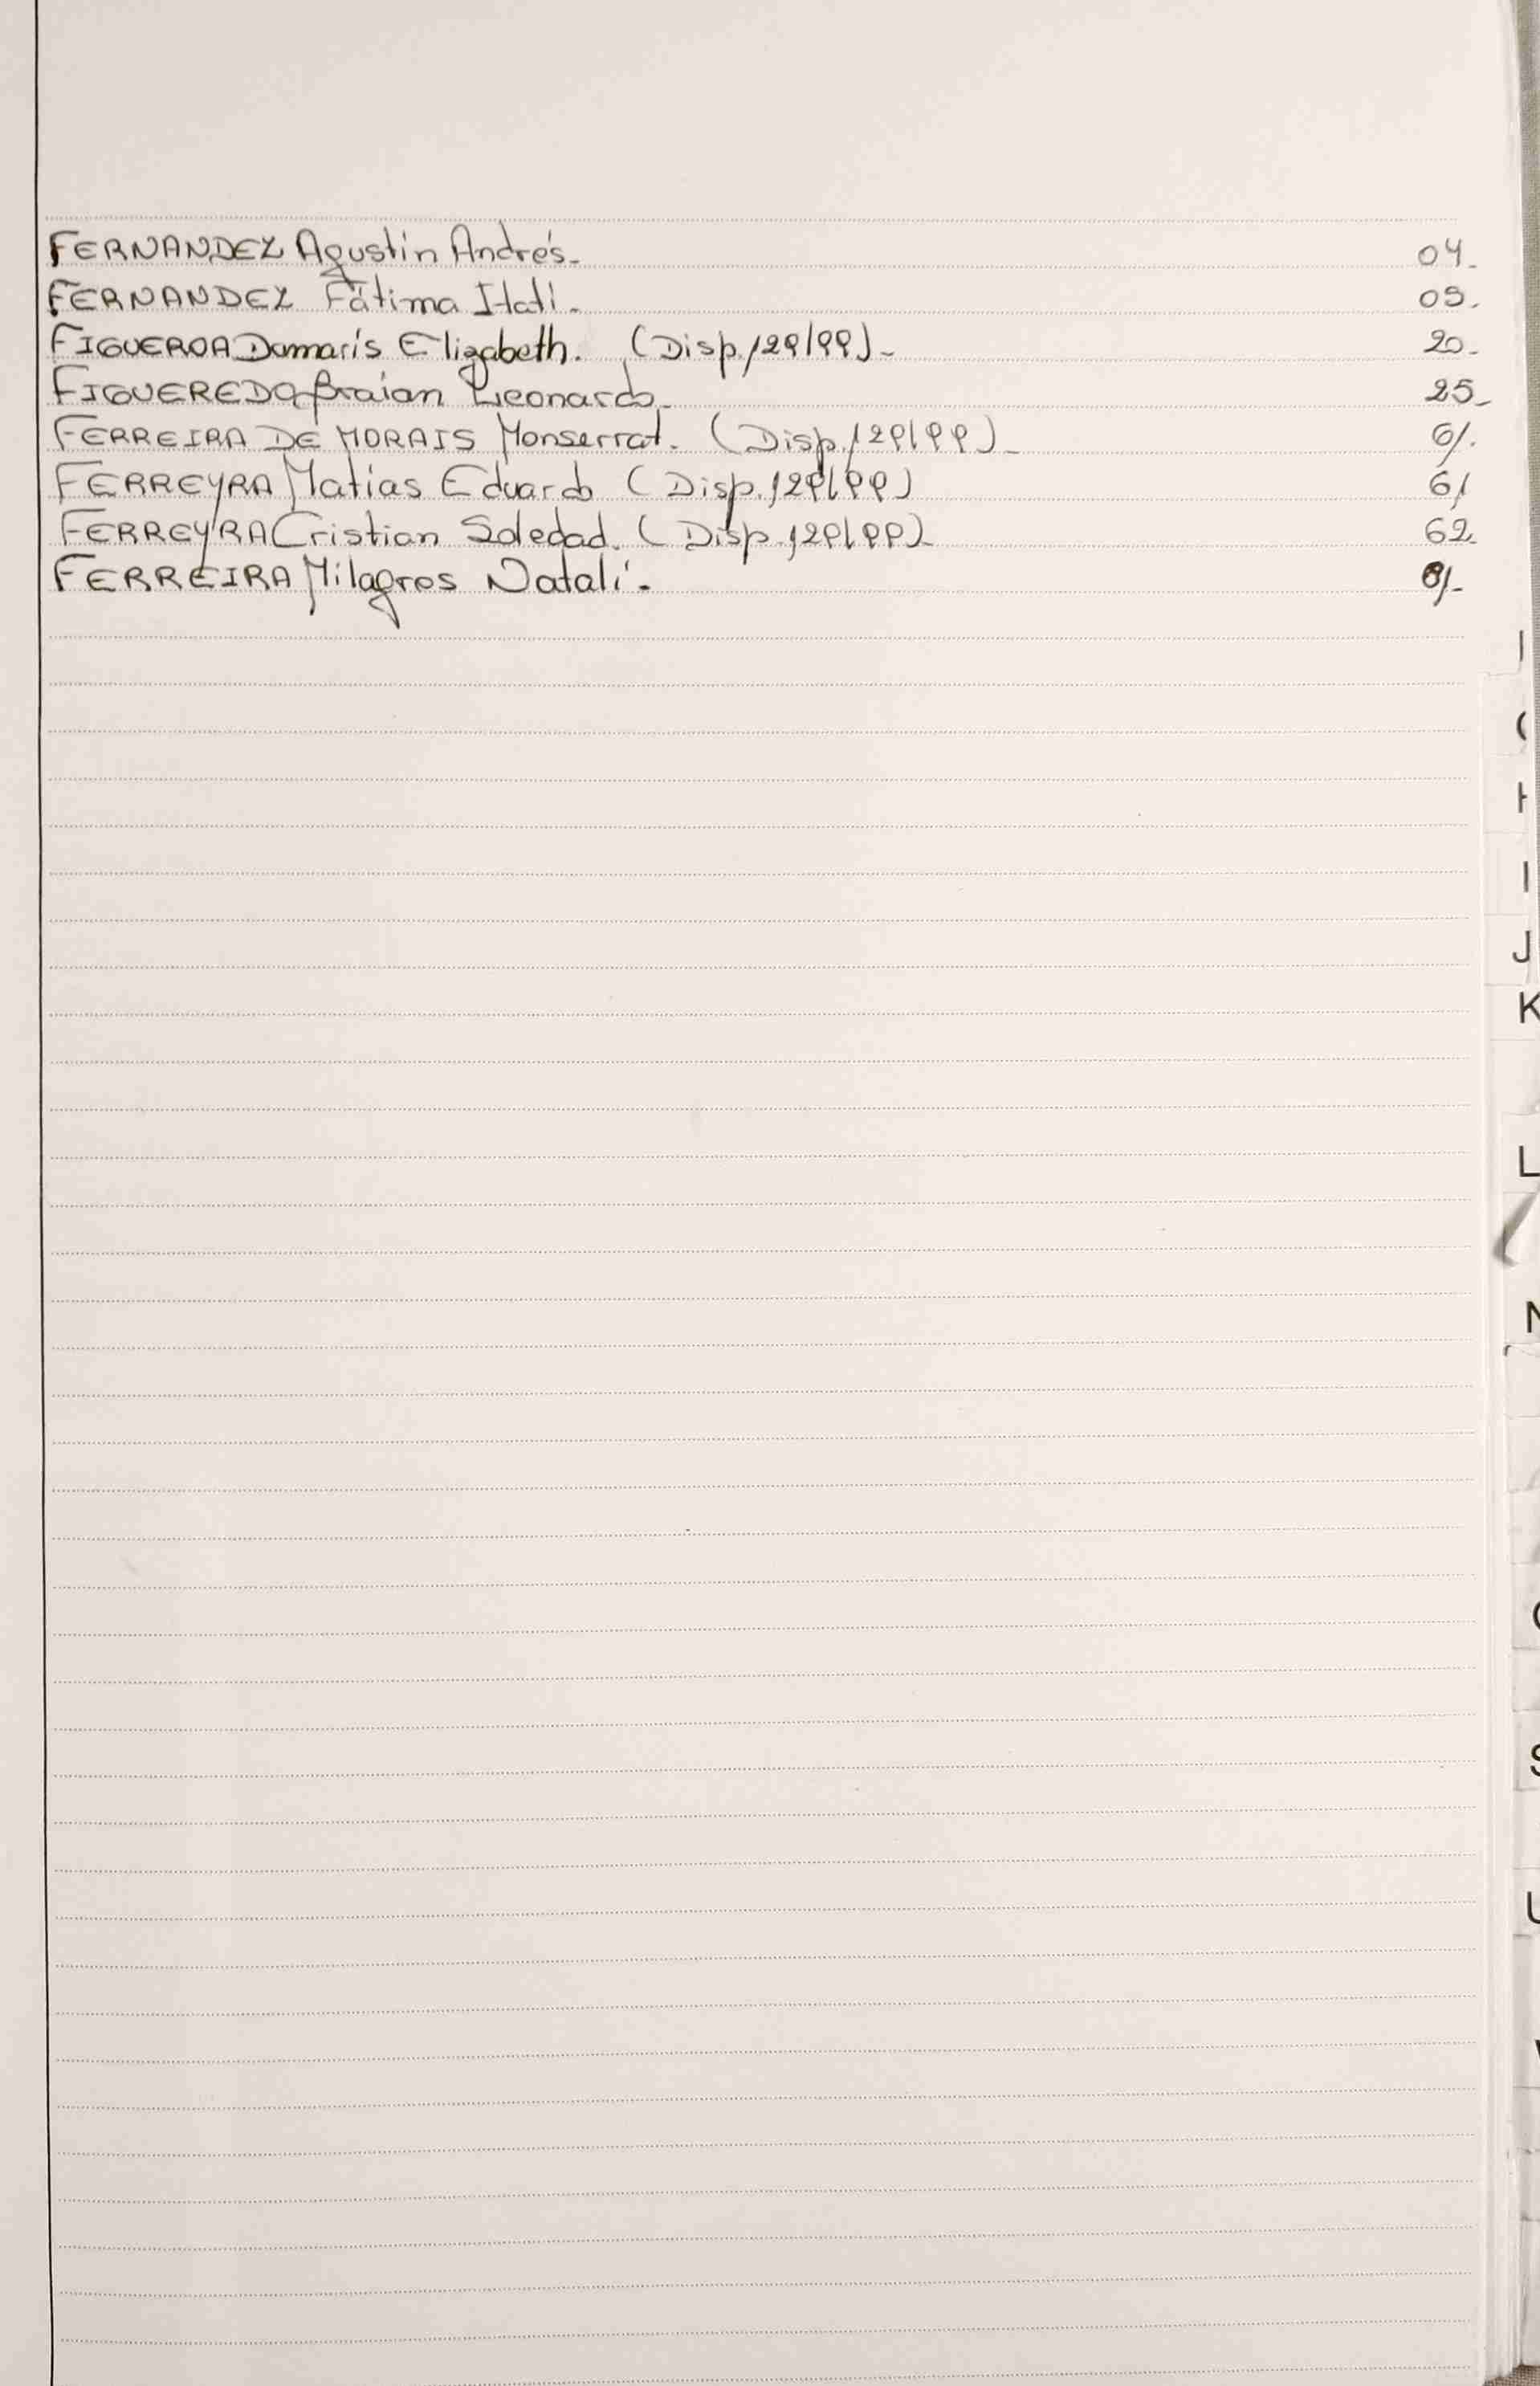 FERNANDEZ Agustín Andrés. 04.
FERNANDEZ Fátima Itatí. 05.
FIGUEROA Damarís Elizabeth. (Disp. 129/99). 20.
FIGUEREDO Braian Leonardo. 25.
FERREIRA DE MORAIS Monserrat. (Disp. 129/99). 61.
FERREYRA Matías Eduardo (Disp. 129/99) 61
FERREYRA Cristian Soledad. (Disp. 129/99). 62.
FERREIRA Milagros Natalí.
J
K
L
N
S
U